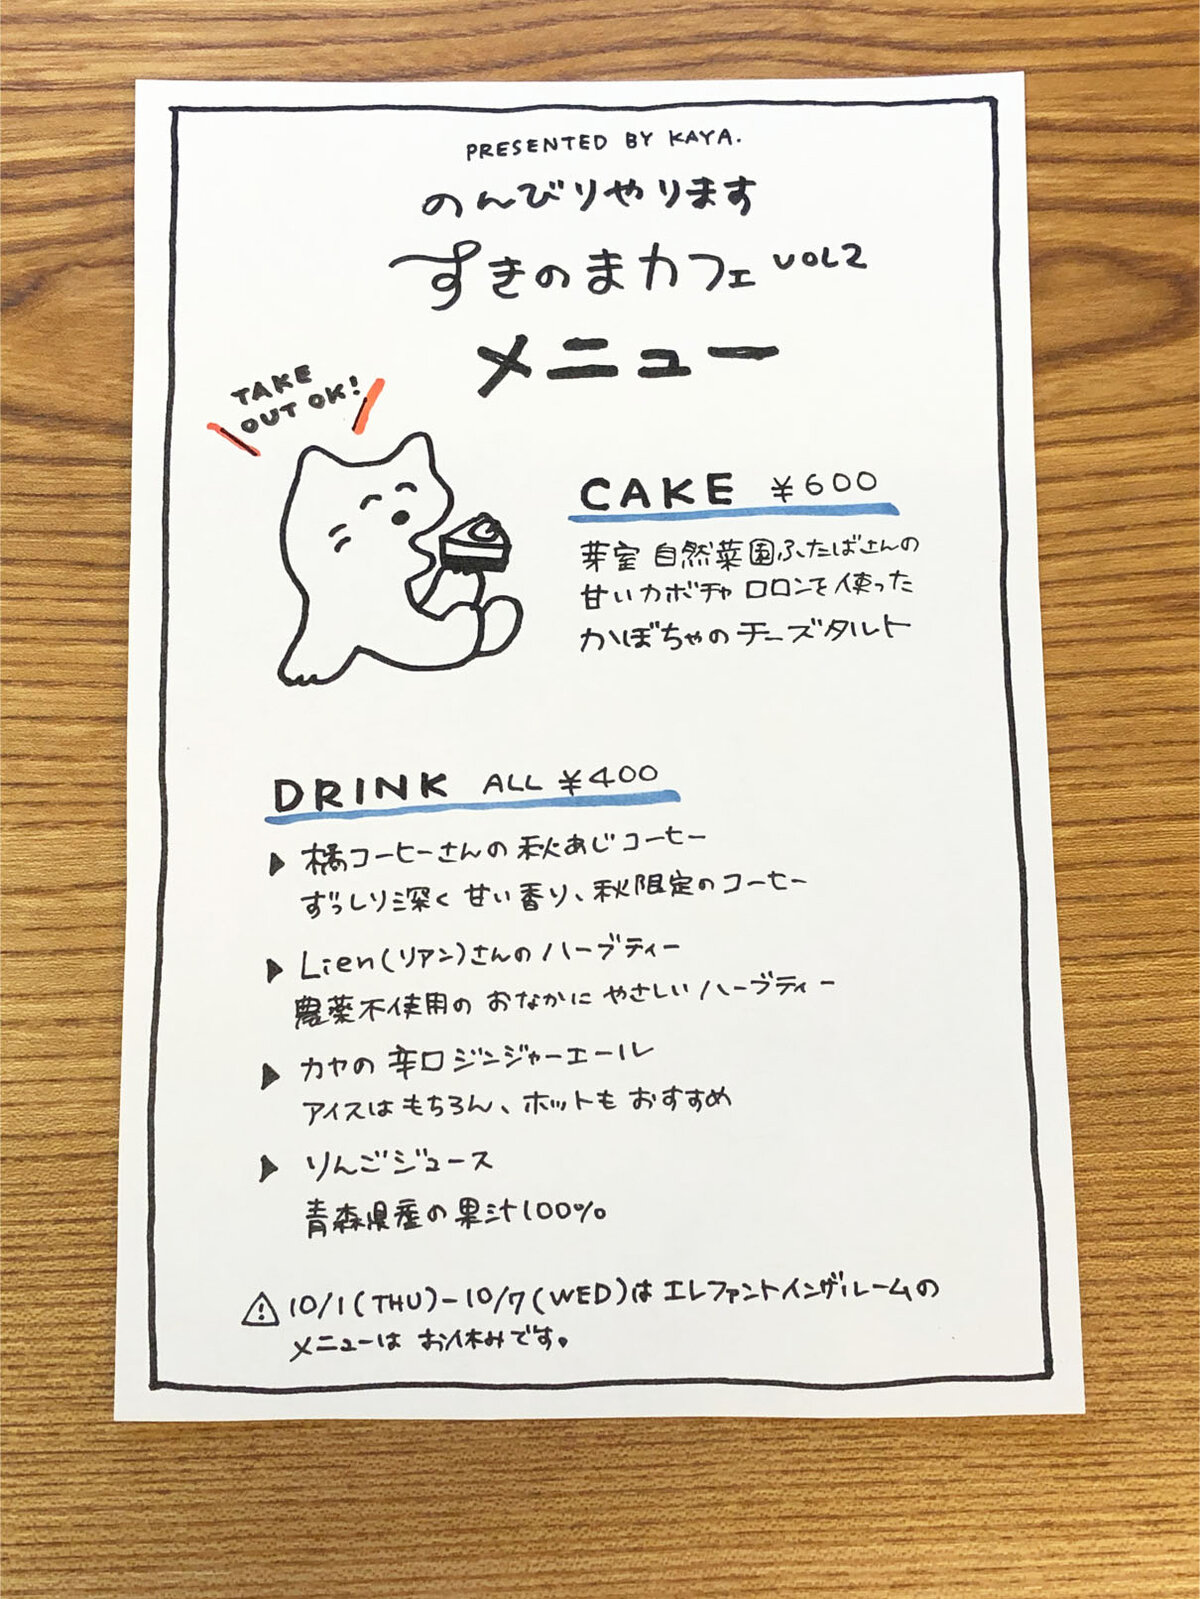 PRESENTED BY KAYA.
のんびりやります
すきのまカフェ VOL2
メニュー
TAKE
OUT OK!
CAKE ¥600
芽室 自然菜園ふたばさんの
甘いカボチャ ロロンを使った
かぼちゃのチーズタルト
DRINK ALL ¥400
▶ 橘コーヒーさんの秋あじコーヒー
ずっしり深く甘い香り、秋限定のコーヒー
▶ Lien(リアン)さんのハーブティー
農薬不使用の おなかに やさしいハーブティー
▶ カヤの 辛口ジンジャーエール
アイスはもちろん、ホットも おすすめ
▶ りんごジュース
青森県産の果汁100%。
⚠ 10/1(THU)-10/7(WED)は エレファントインザルームの
メニューは お休みです。